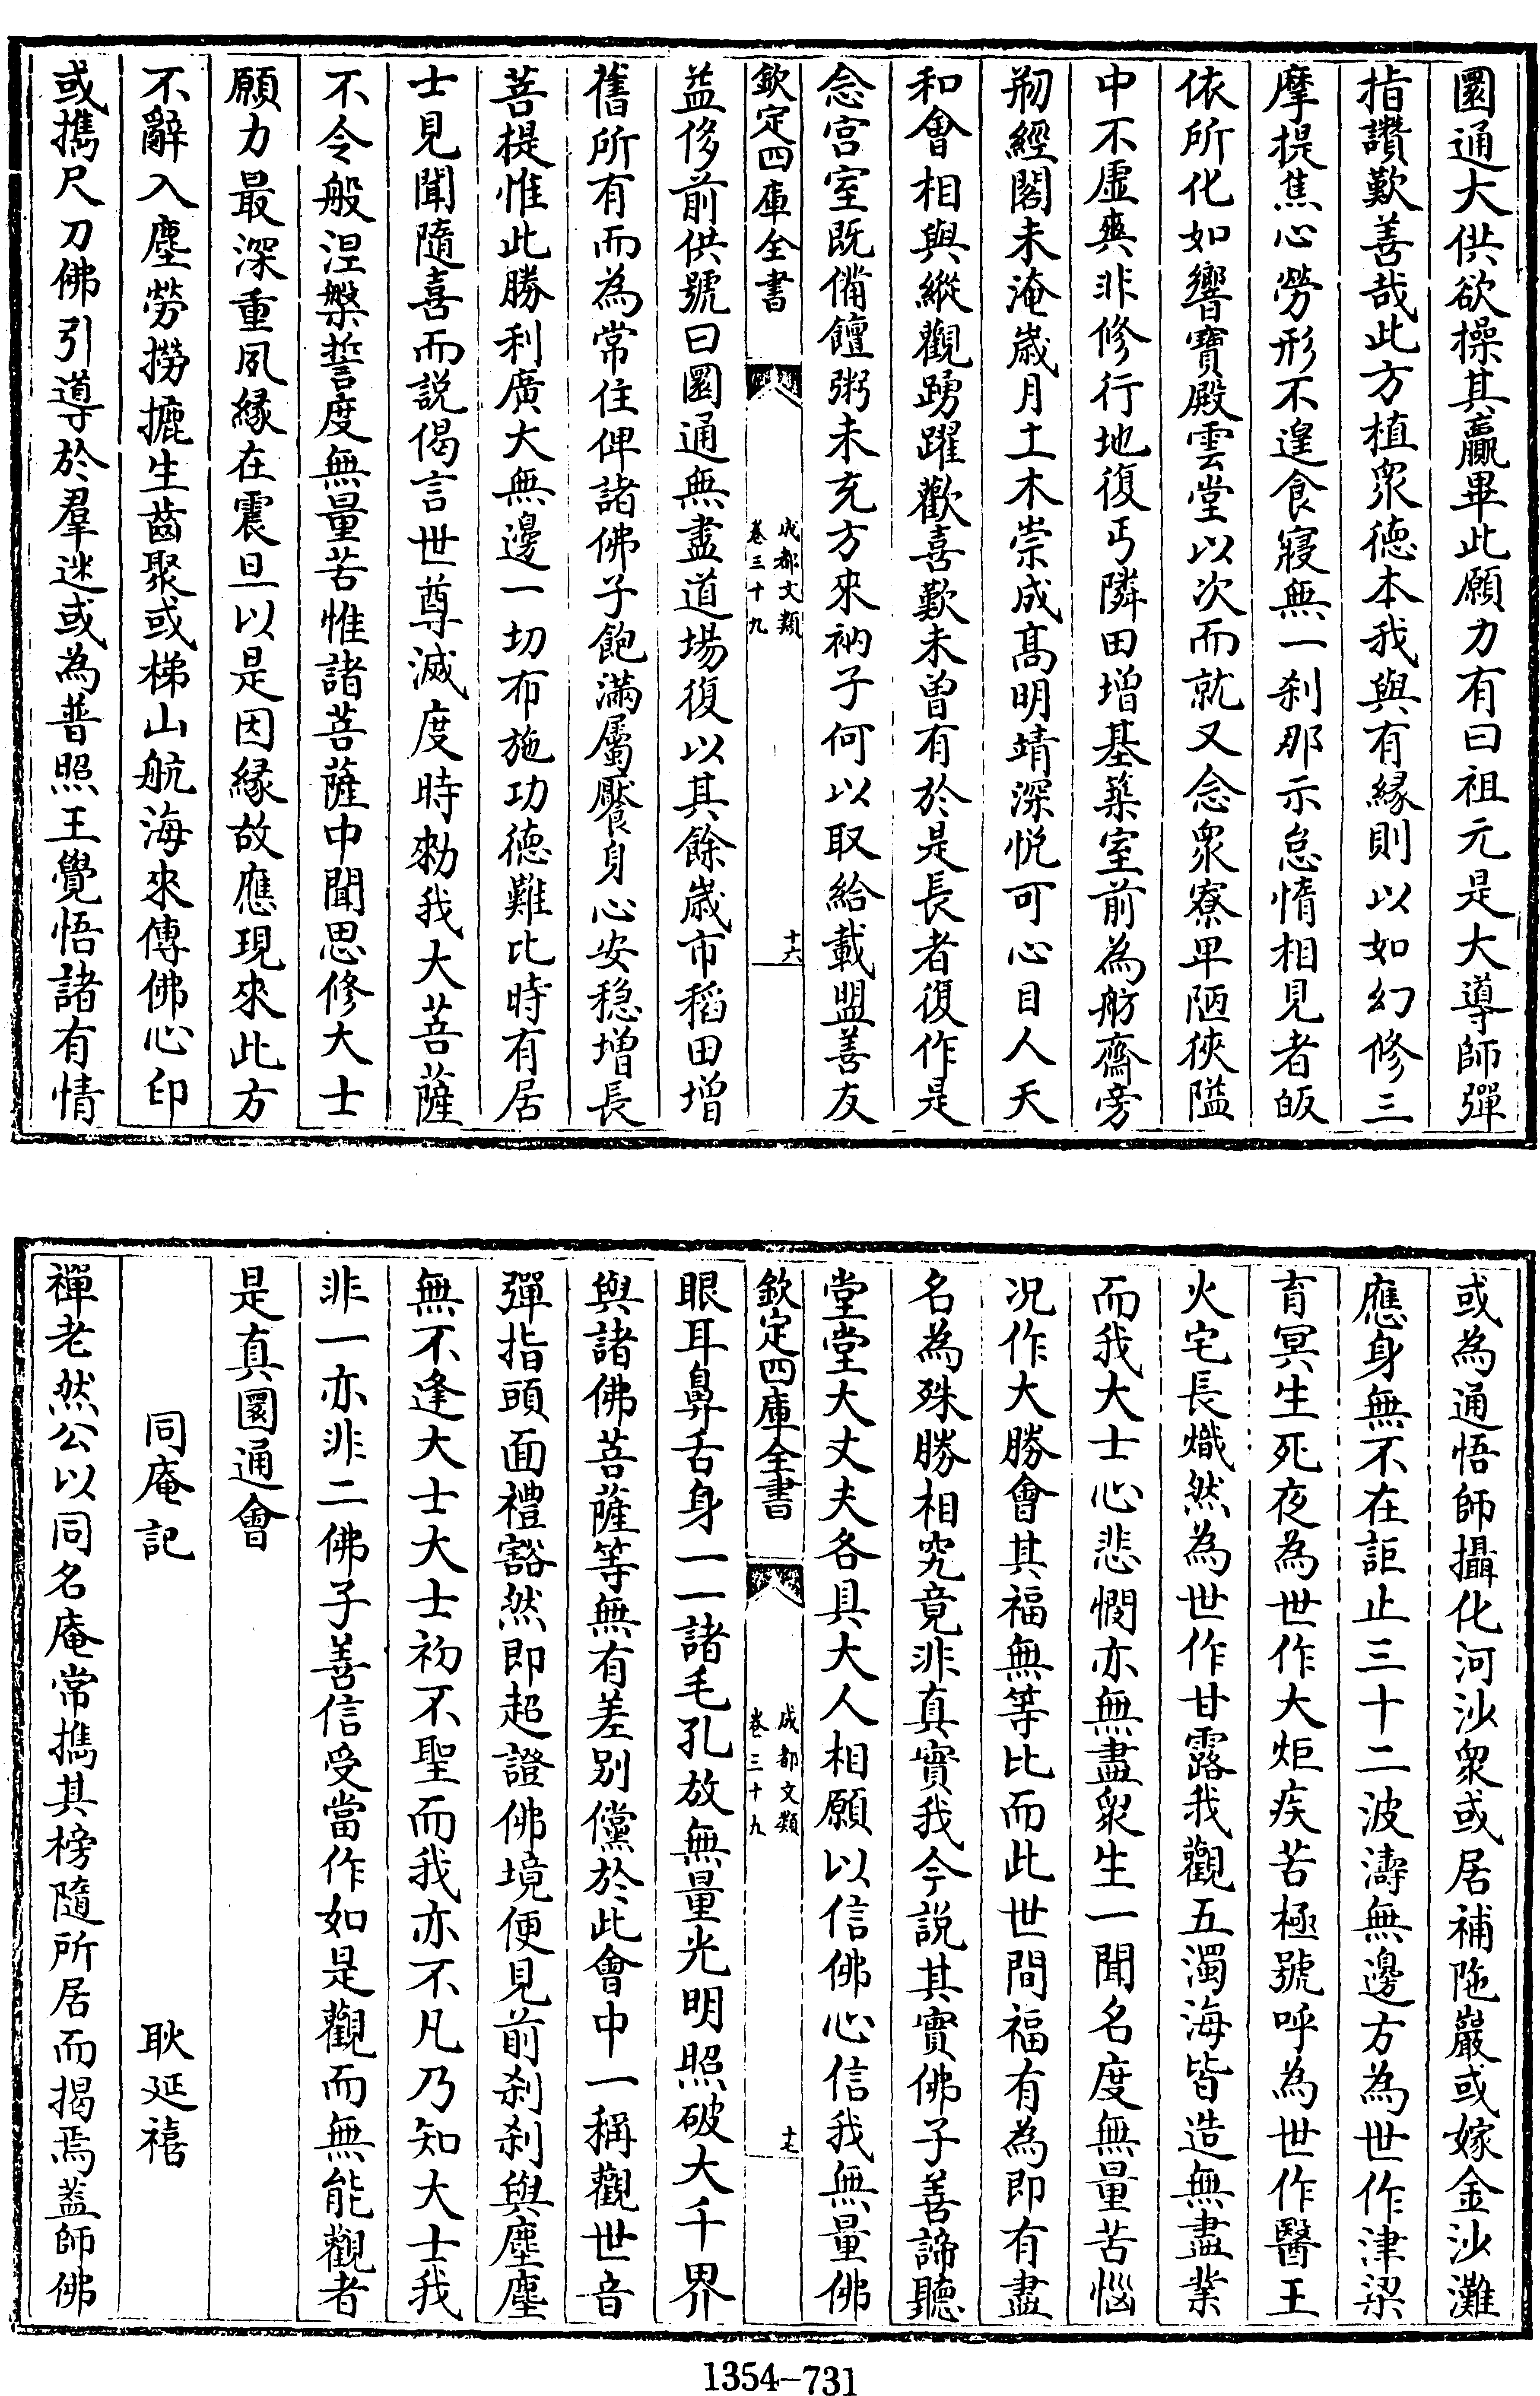 圜通大供欲操其贏畢此願力有曰祖元是大導師彈
指讚歎善哉此方植衆徳本我與有縁則以如幻修三
摩提焦心勞形不遑食寢無一刹那示怠惰相見者皈
依所化如響寶殿雲堂以次而就又念衆寮卑陋狹隘
中不虛爽非修行地復丐隣田增基築室前為舫齋旁
剏經閣未淹歲月土木崇成髙明靖深悅可心目人天
和會相與縱觀踴躍歡喜歎未曾有於是長者復作是
念宮室既備饘粥未充方來衲子何以取給載盟善友
欽定四庫全書
成都文類
卷三十九
十六
益侈前供號曰圜通無盡道場復以其餘歲市稻田增
舊所有而為常住俾諸佛子飽滿屬饜身心安穏增長
菩提惟此勝利廣大無邊一切布施功德難比時有居
士見聞隨喜而説偈言世尊滅度時勑我大菩薩
不令般涅槃誓度無量苦惟諸菩薩中聞思修大士
願力最深重夙縁在震旦以是因縁故應現來此方
不辭入塵勞撈摝生齒聚或梯山航海來傳佛心印
或擕尺刀佛引導於羣迷或為普照王覺悟諸有情
或為通悟師攝化河沙衆或居補陁巖或嫁金沙灘
應身無不在詎止三十二波濤無邊方為世作津梁
育冥生死夜為世作大炬疾苦極號呼為世作醫王
火宅長熾然為世作甘露我觀五濁海皆造無盡業
而我大士心悲憫亦無盡衆生一聞名度無量苦惱
况作大勝會其福無等比而此世間福有為即有盡
名為殊勝相究竟非真實我今説其實佛子善諦聽
堂堂大丈夫各具大人相願以信佛心信我無量佛
欽定四庫全書
成都文類
卷三十九
十七
眼耳鼻舌身一一諸毛孔放無量光明照破大千界
與諸佛菩薩等無有差别儻於此會中一稱觀世音
彈指頭面禮豁然即超證佛境便見前刹刹與塵塵
無不逢大士大士初不聖而我亦不凡乃知大士我
非一亦非二佛子善信受當作如是觀而無能觀者
是真圜通會
同庵記　耿延禧
禪老然公以同名庵常擕其榜隨所居而揭焉蓋師佛
1354-731